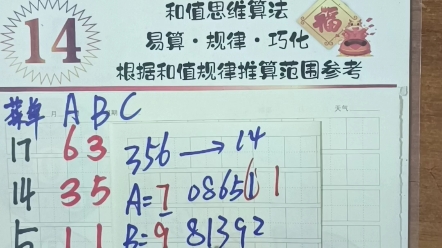 14
和值思维算法
易算·规律·巧化
根据和值规律推算范围参考
福
天气
菜单 A B=C
17 63
14 35
15 11
356 → 14
A=7 08651 1
B=9 81392